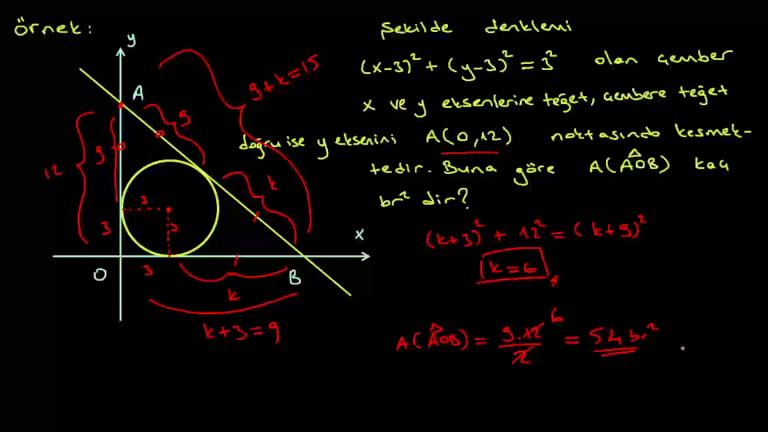 Örnek:
Şekilde denklemi
(x-3)² + (y-3)² = 3² olan çember
x ve y eksenlerine teğet, çembere teğet
doğru ise y eksenini A(0,12) noktasında kesmek-
tedir. Buna göre A(AÔB) kaç
br² dir?
y
A
9+k=15
9
9
12
k
3
3
3
x
O
3
B
k
k+3=9
(k+3)² + 12² = (k+9)²
k=6
A(AÔB) = 9.12/2 6 = 54 br²